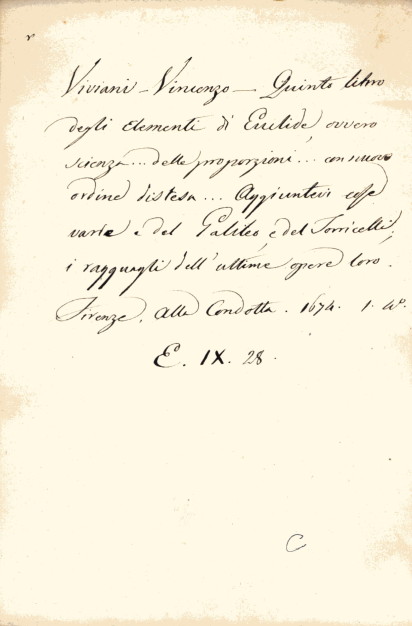 v
Viviani - Vincenzo - Quinto libro
degli elementi di Euclide ovvero
scienza... delle proporzioni... con nuovo
ordine distesa... Aggiuntevi cose
varie e del Galileo e del Torricelli;
i ragguagli dell'ultime opere loro.
Firenze. alla Condotta. 1674. 1. 4°.
E. IX. 28.
C